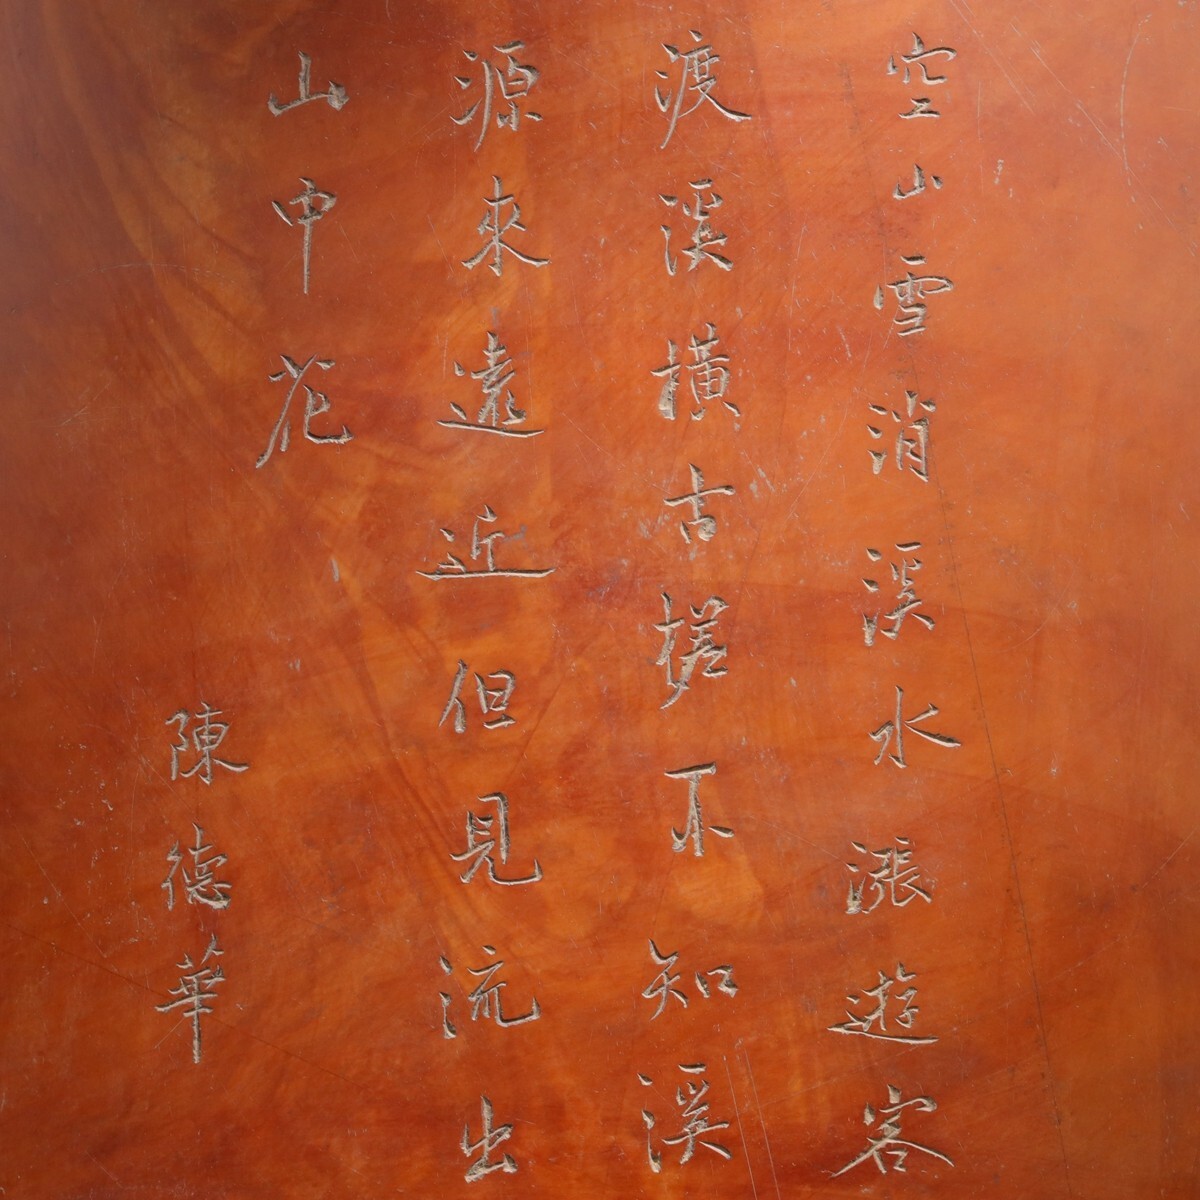 空山雪消溪水漲遊客
渡溪橫古槎不知溪
源來遠近但見流出
山中花
陳德華